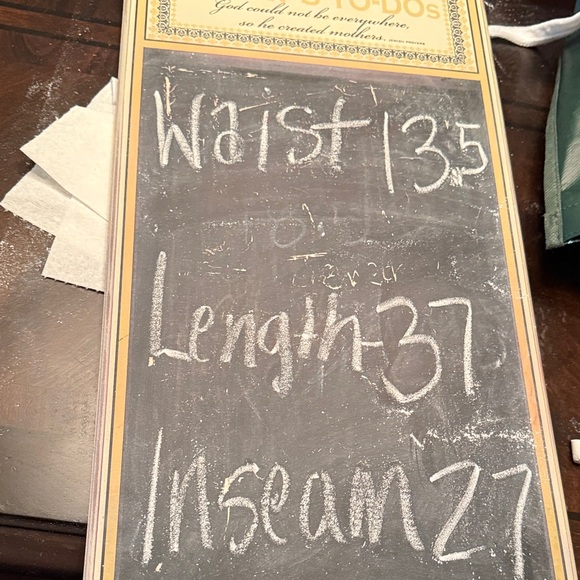 TO-DOs
God could not be everywhere,
so he created mothers. JEWISH PROVERB
Waist 13.5
Length 37
Inseam 27